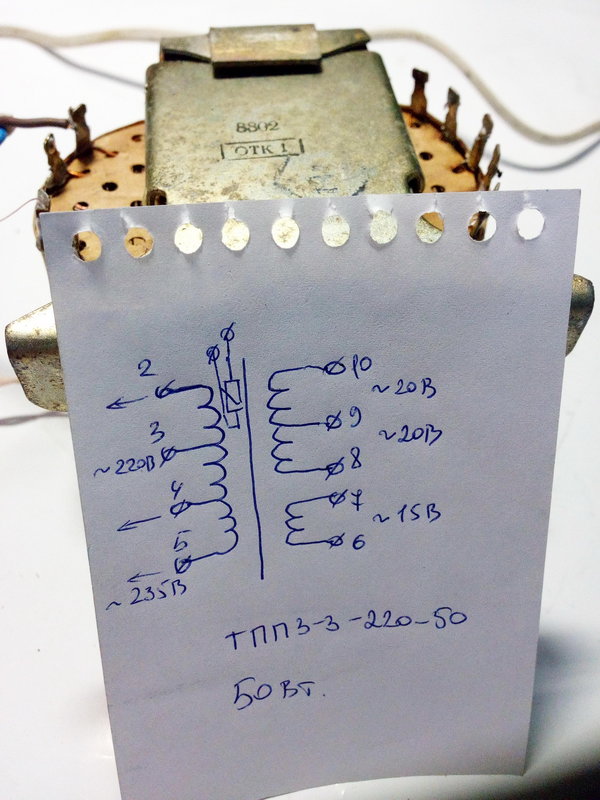 8802
ОТК 1
2
10
~20В
3
9
~220В
~20В
8
4
7
~15В
5
6
~235В
ТПП3-3-220-50
50 Вт.